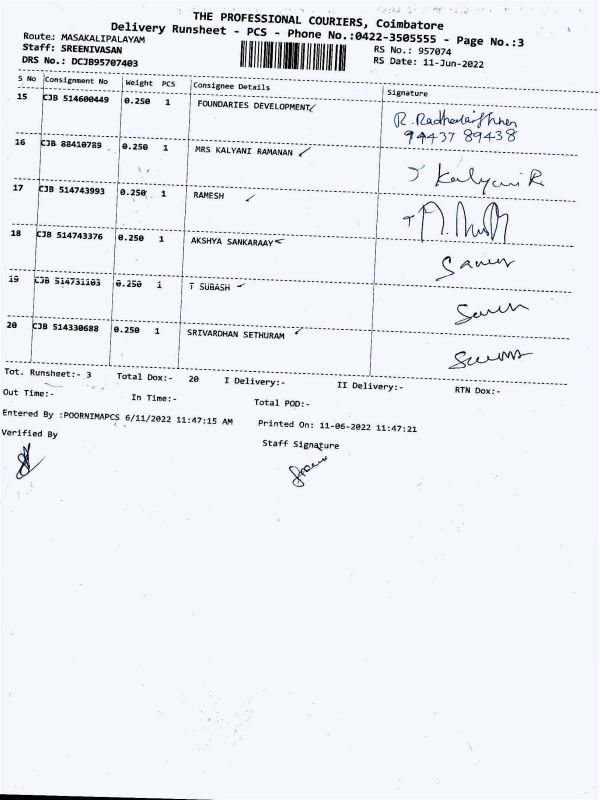 THE PROFESSIONAL COURIERS, Coimbatore
Delivery Runsheet - PCS - Phone No.:0422-3505555 - Page No.:3
Route: MASAKALIPALAYAM
Staff: SREENIVASAN RS No.: 957074
DRS No.: DCJB95707403 RS Date: 11-Jun-2022
S No Consignment No Weight PCS Consignee Details Signature
15 CJB 514600449 0.250 1 FOUNDARIES DEVELOPMENT
94437 89438
16 CJB 88410789 0.250 1 MRS KALYANI RAMANAN Kalyani R
17 CJB 514743993 0.250 1 RAMESH
18 CJB 514743376 0.250 1 AKSHYA SANKARAAY
19 CJB 514731103 0.250 1 T SUBASH
20 CJB 514330688 0.250 1 SRIVARDHAN SETHURAM
Tot. Runsheet:- 3 Total Dox:- 20 I Delivery:- II Delivery:- RTN Dox:-
Out Time:- In Time:- Total POD:-
Entered By :POORNIMAPCS 6/11/2022 11:47:15 AM Printed On: 11-06-2022 11:47:21
Verified By Staff Signature